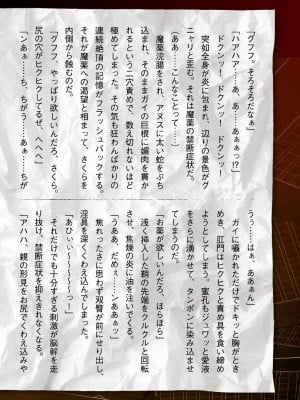 「グフフ。そろそろだなぁ」
「ハアハア……あ、あ……あぁぁっ!?」
ドクンッ! ドクンッ! ドクンッ!
突如全身が炎に包まれ、辺りの景色がグ
ニャリと歪む。それは魔薬の禁断症状だ。
(ああ……こんなことって……)
魔薬浣腸をされ、アヌスに太い蛇をぶち
込まれ、そのままガイの巨根に媚肉を貫か
れるという二穴責めで、数え切れないほど
極めてしまった。その気も狂わんばかりの
連続絶頂の記憶がフラッシュバックする。
それが魔薬への渇望と相まって、さくらを
内側から蝕むのだ。
「グフフ、やっぱり欲しいんだろ、さくら。
尻の穴がヒクヒクしてるぜ。へへへ」
「ンあぁ……ち、ちがう……あぁ……ちが
うぅ……はぁ、ああぁん」
ガイに囁かれただけでドキッと胸がとき
めき、肛門はヒクヒクと責め具を食い締め
ようとしてしまう。蜜孔もジュワッと愛液
をさらに湧かせて、タンポンに染み込ませ
てしまうのだ。
「お薬が欲しいんだろ、ほらほら」
浅く挿入した鞘の先端をクルクルと回転
させ、焦燥の炎に油を注いでくる。
「うああ、だめぇ……ンああぁッ」
焦れったさに思わず双臀が前にせり出し、
淫具を深くくわえ込んでしまった。
「あひぃぃ〜〜〜〜〜〜っ!」
それだけでも十分すぎる刺激が脳幹を走
り抜け、禁断症状を抑えきれなくなる。
「アハハ、親の形見をお尻でくわえ込みや